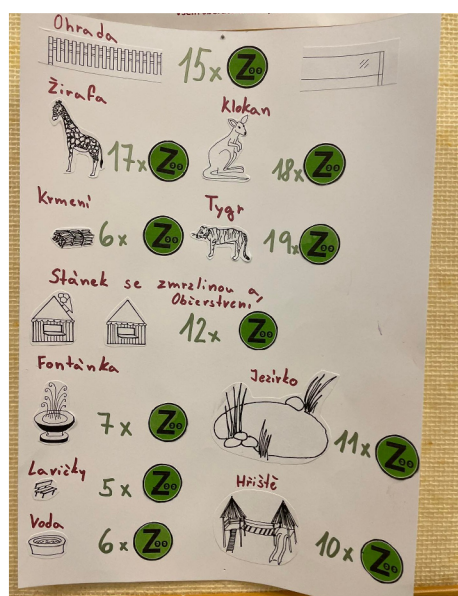 Ohrada
15x Zoo
Žirafa
Klokan
17x Zoo
18x Zoo
Krmení
Tygr
6x Zoo
19x Zoo
Stánek se zmrzlinou a
Občerstvení
12x Zoo
Fontánka
Jezírko
7x Zoo
11x Zoo
Lavičky
5x Zoo
Hřiště
Voda
6x Zoo
10x Zoo